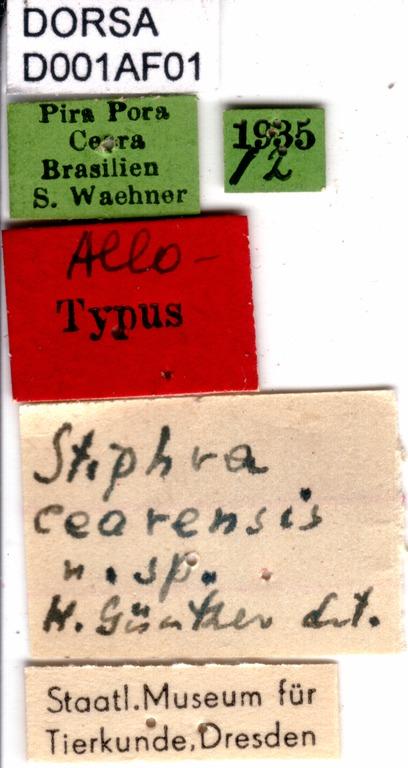 DORSA
D001AF01
Pira Pora
Ceara
Brasilien
S. Waehner
1935
12
Allo-
Typus
Stiphra
cearensis
n. sp.
H. Günther det.
Staatl.Museum für
Tierkunde,Dresden